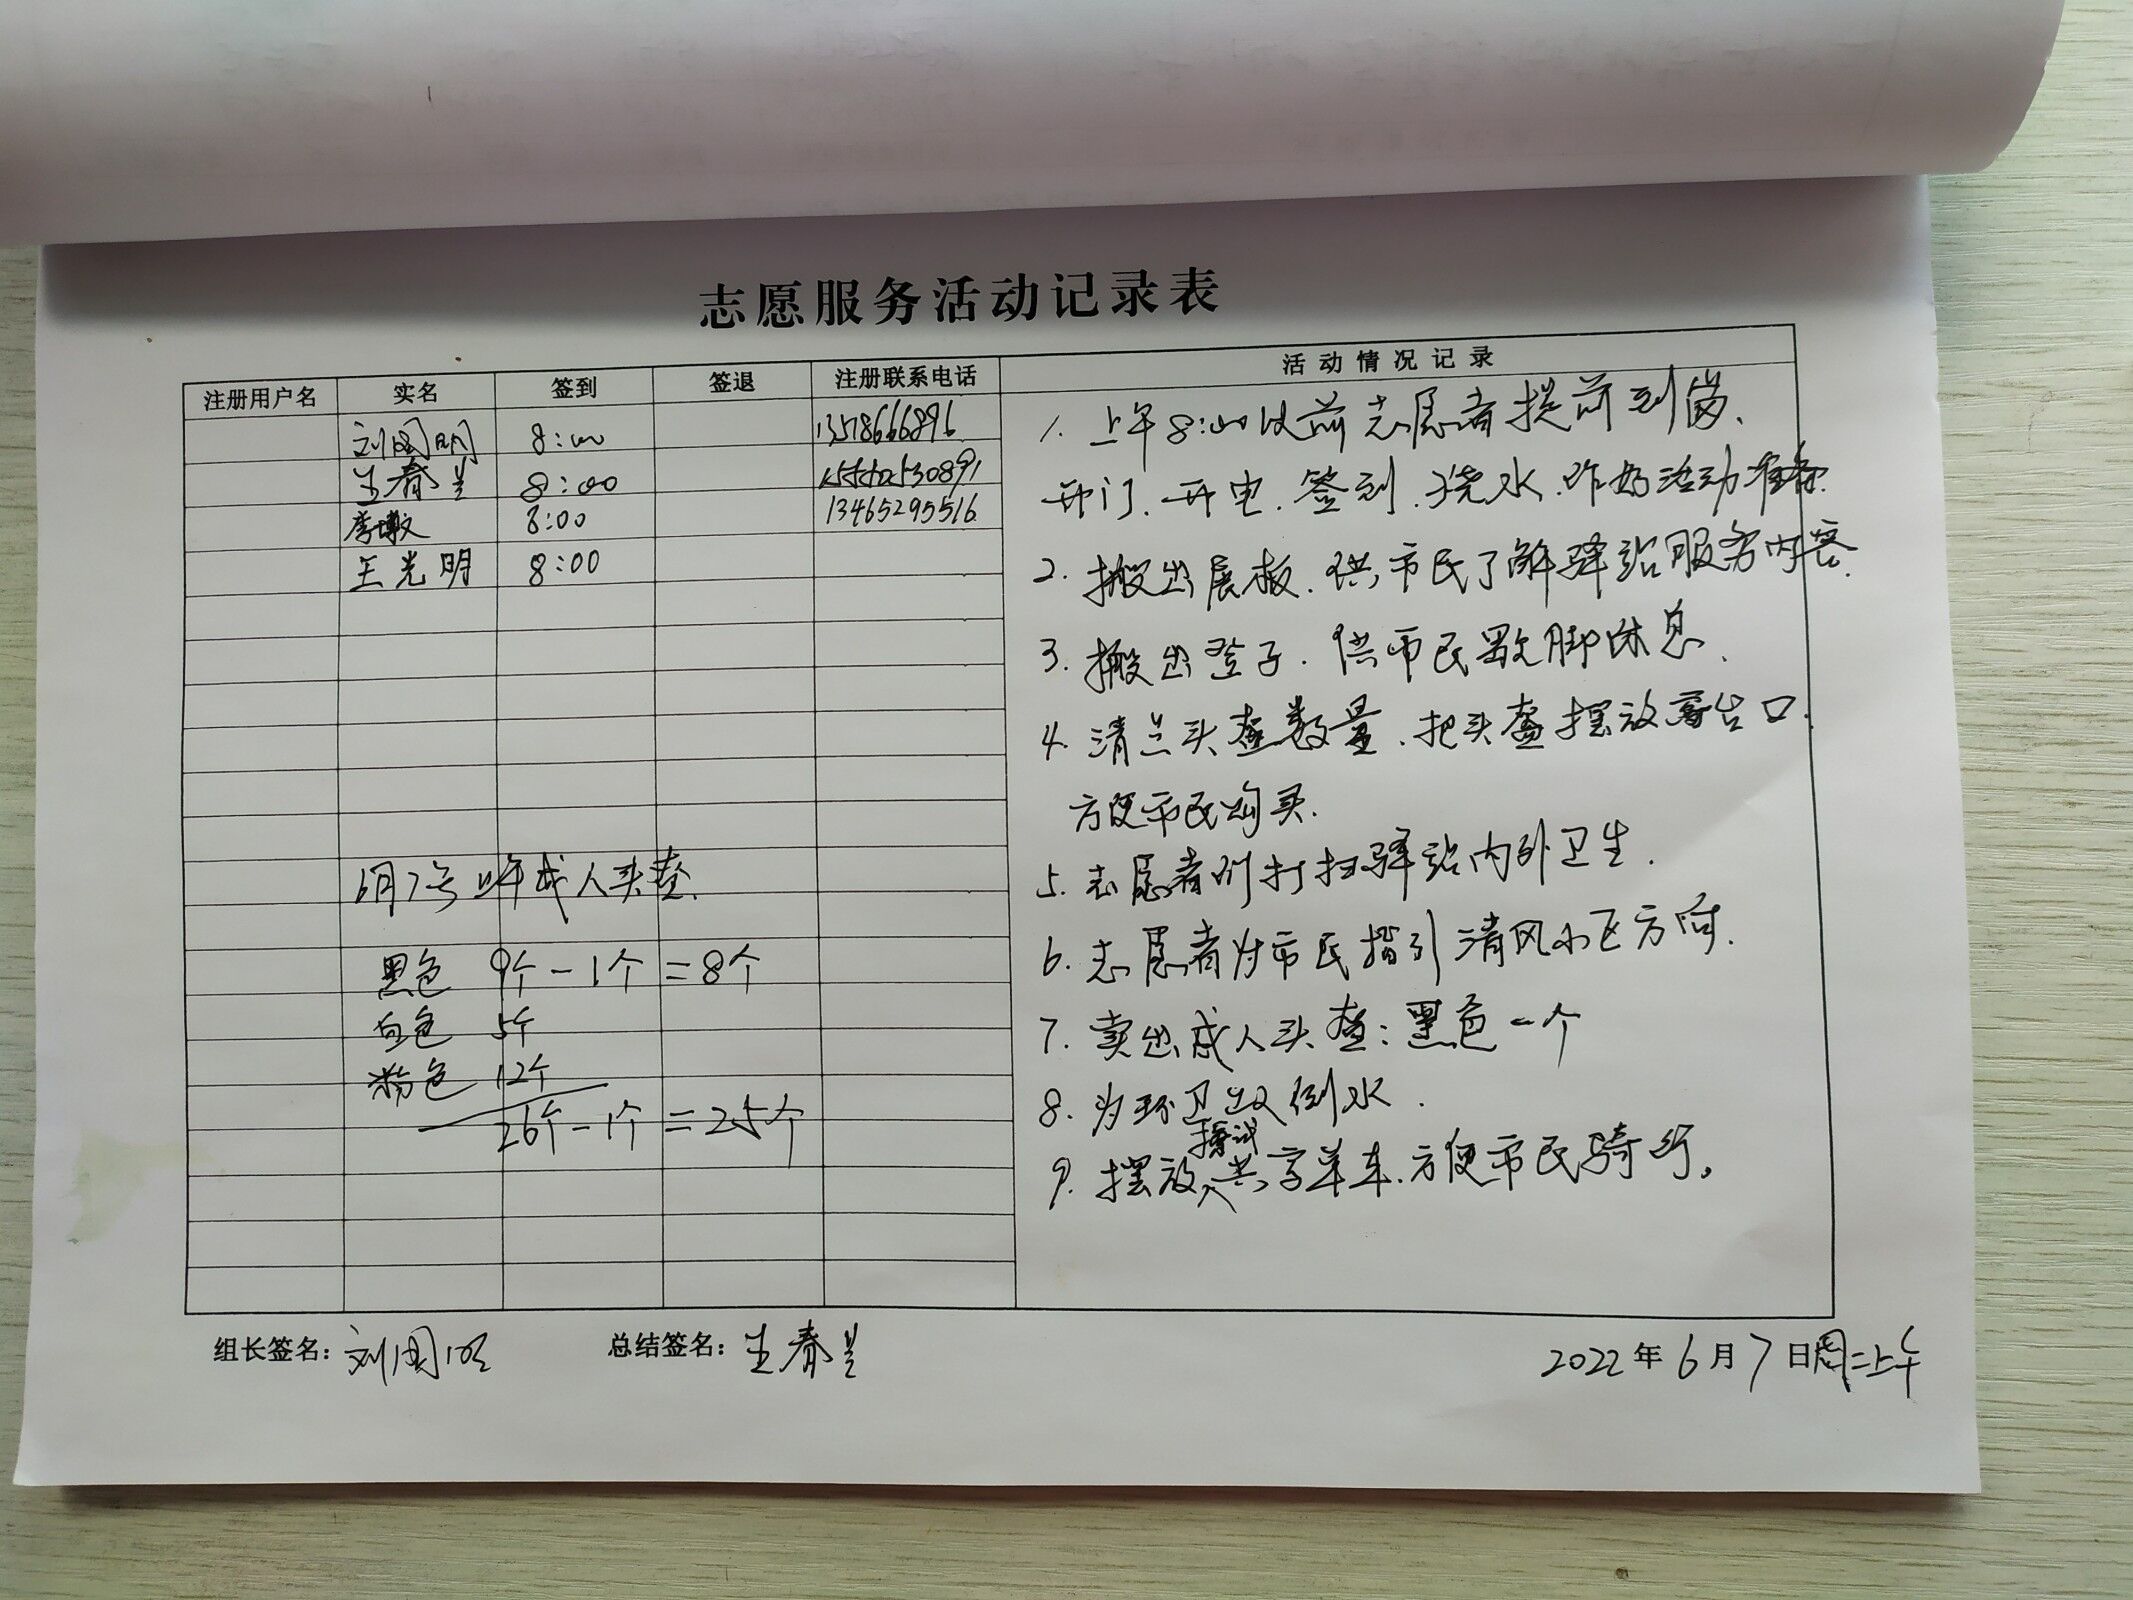 志愿服务活动记录表
注册用户名 实名 签到 签退 注册联系电话 活动情况记录
刘国明 8:00 13518666896
王春兰 8:00
李墩 8:00 13465295516
王光明 8:00
6月7号上午成人头盔
黑色 9个-1个=8个
白色 5个
粉色 12个
26个-1个=25个
1. 上午8:00以前志愿者提前到岗、
开门、开电、签到、烧水、作好活动准备.
2. 搬出展板、供市民了解驿站服务内容.
3. 搬出登子、供市民歇脚休息、
4. 清兰头盔数量、把头盔摆放窗台口、
方便市民购买.
5. 志愿者们打扫驿站内外卫生.
6. 志愿者为市民指引清风小区方向.
7. 卖出成人头盔:黑色一个
8. 为环卫倒水.
擦试
9. 摆放共享单车、方便市民骑行。
组长签名:刘国明 总结签名:王春兰 2022年6月7日周二上午